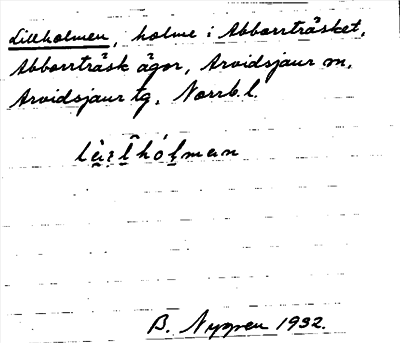 Lillholmen, holme i Abborrträsket,
Abborrträsk ägor, Arvidsjaur sn,
Arvidsjaur tg. Norrb. l.
B. Nygren 1932.